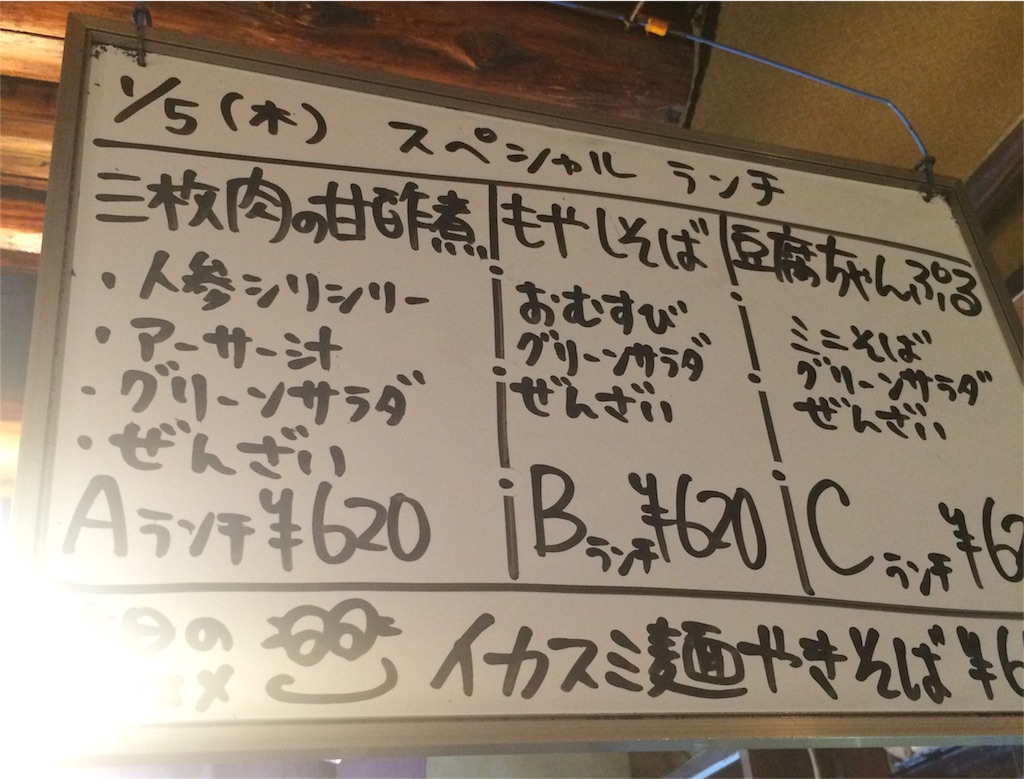 1/5(木) スペシャル ランチ
三枚肉の甘酢煮
・人参シリシリー
・アーサー汁
・グリーンサラダ
・ぜんざい
Aランチ¥620
もやしそば
おむすび
グリーンサラダ
ぜんざい
Bランチ¥620
豆腐ちゃんぷる
ミニそば
グリーンサラダ
ぜんざい
Cランチ¥62
日の
メ
イカスミ麺やきそば¥6